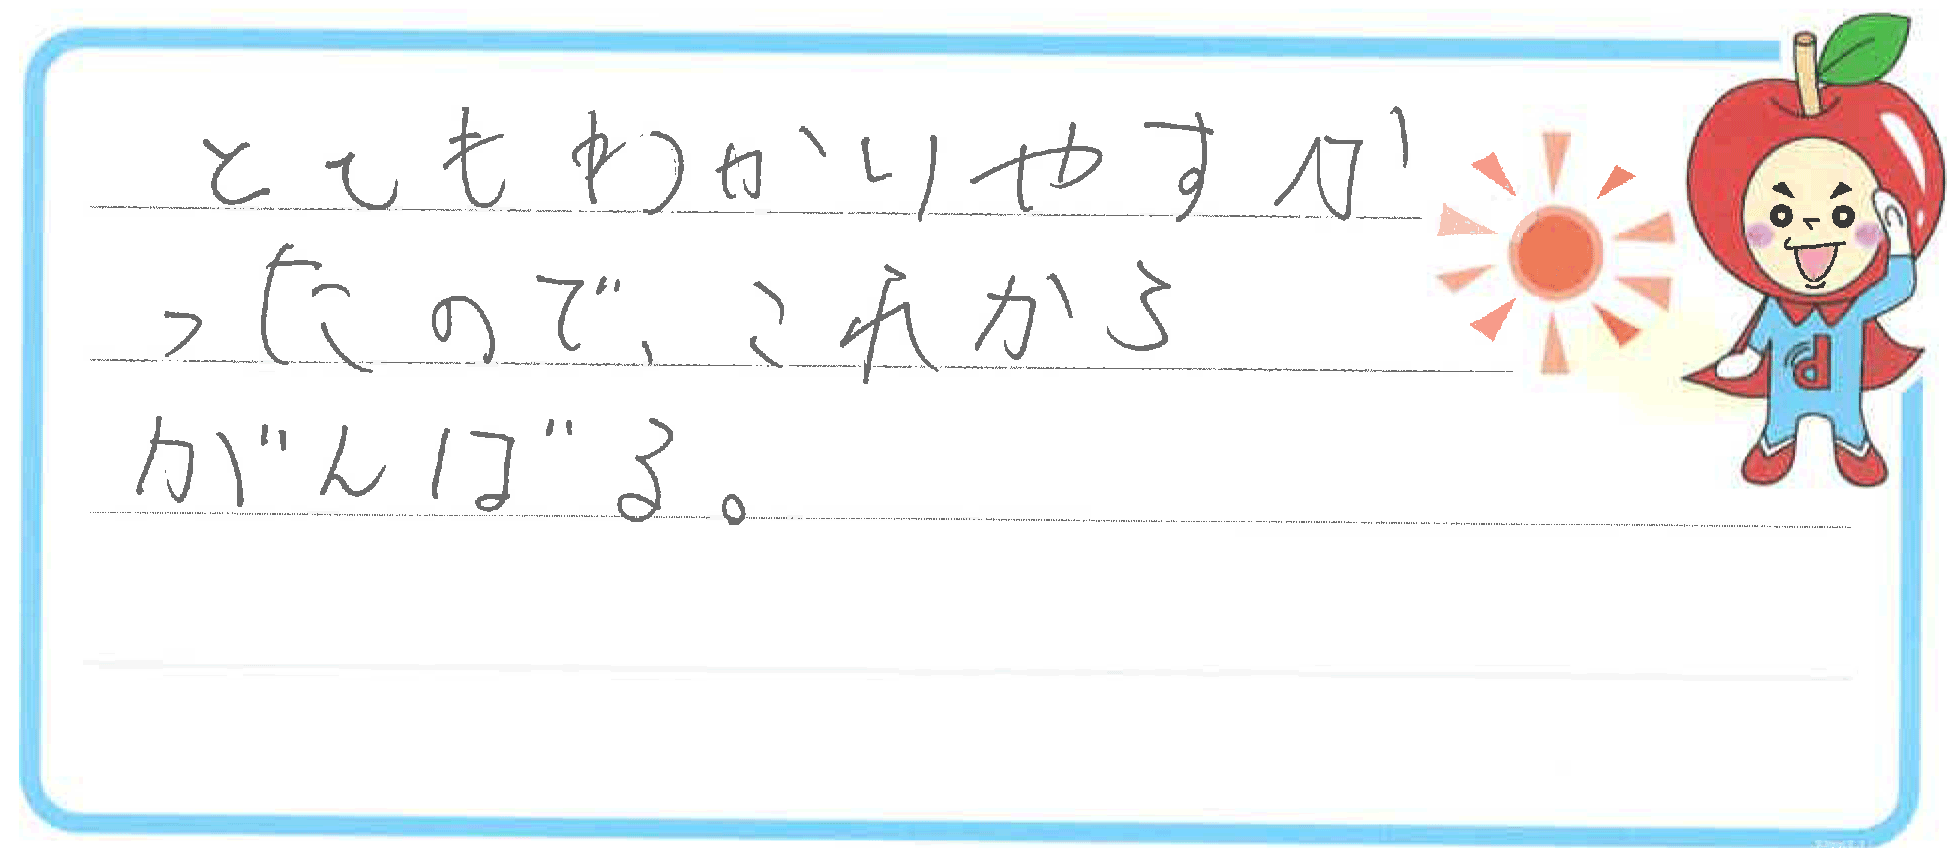 とてもわかりやすか
ったので、これから
がんばる。
d